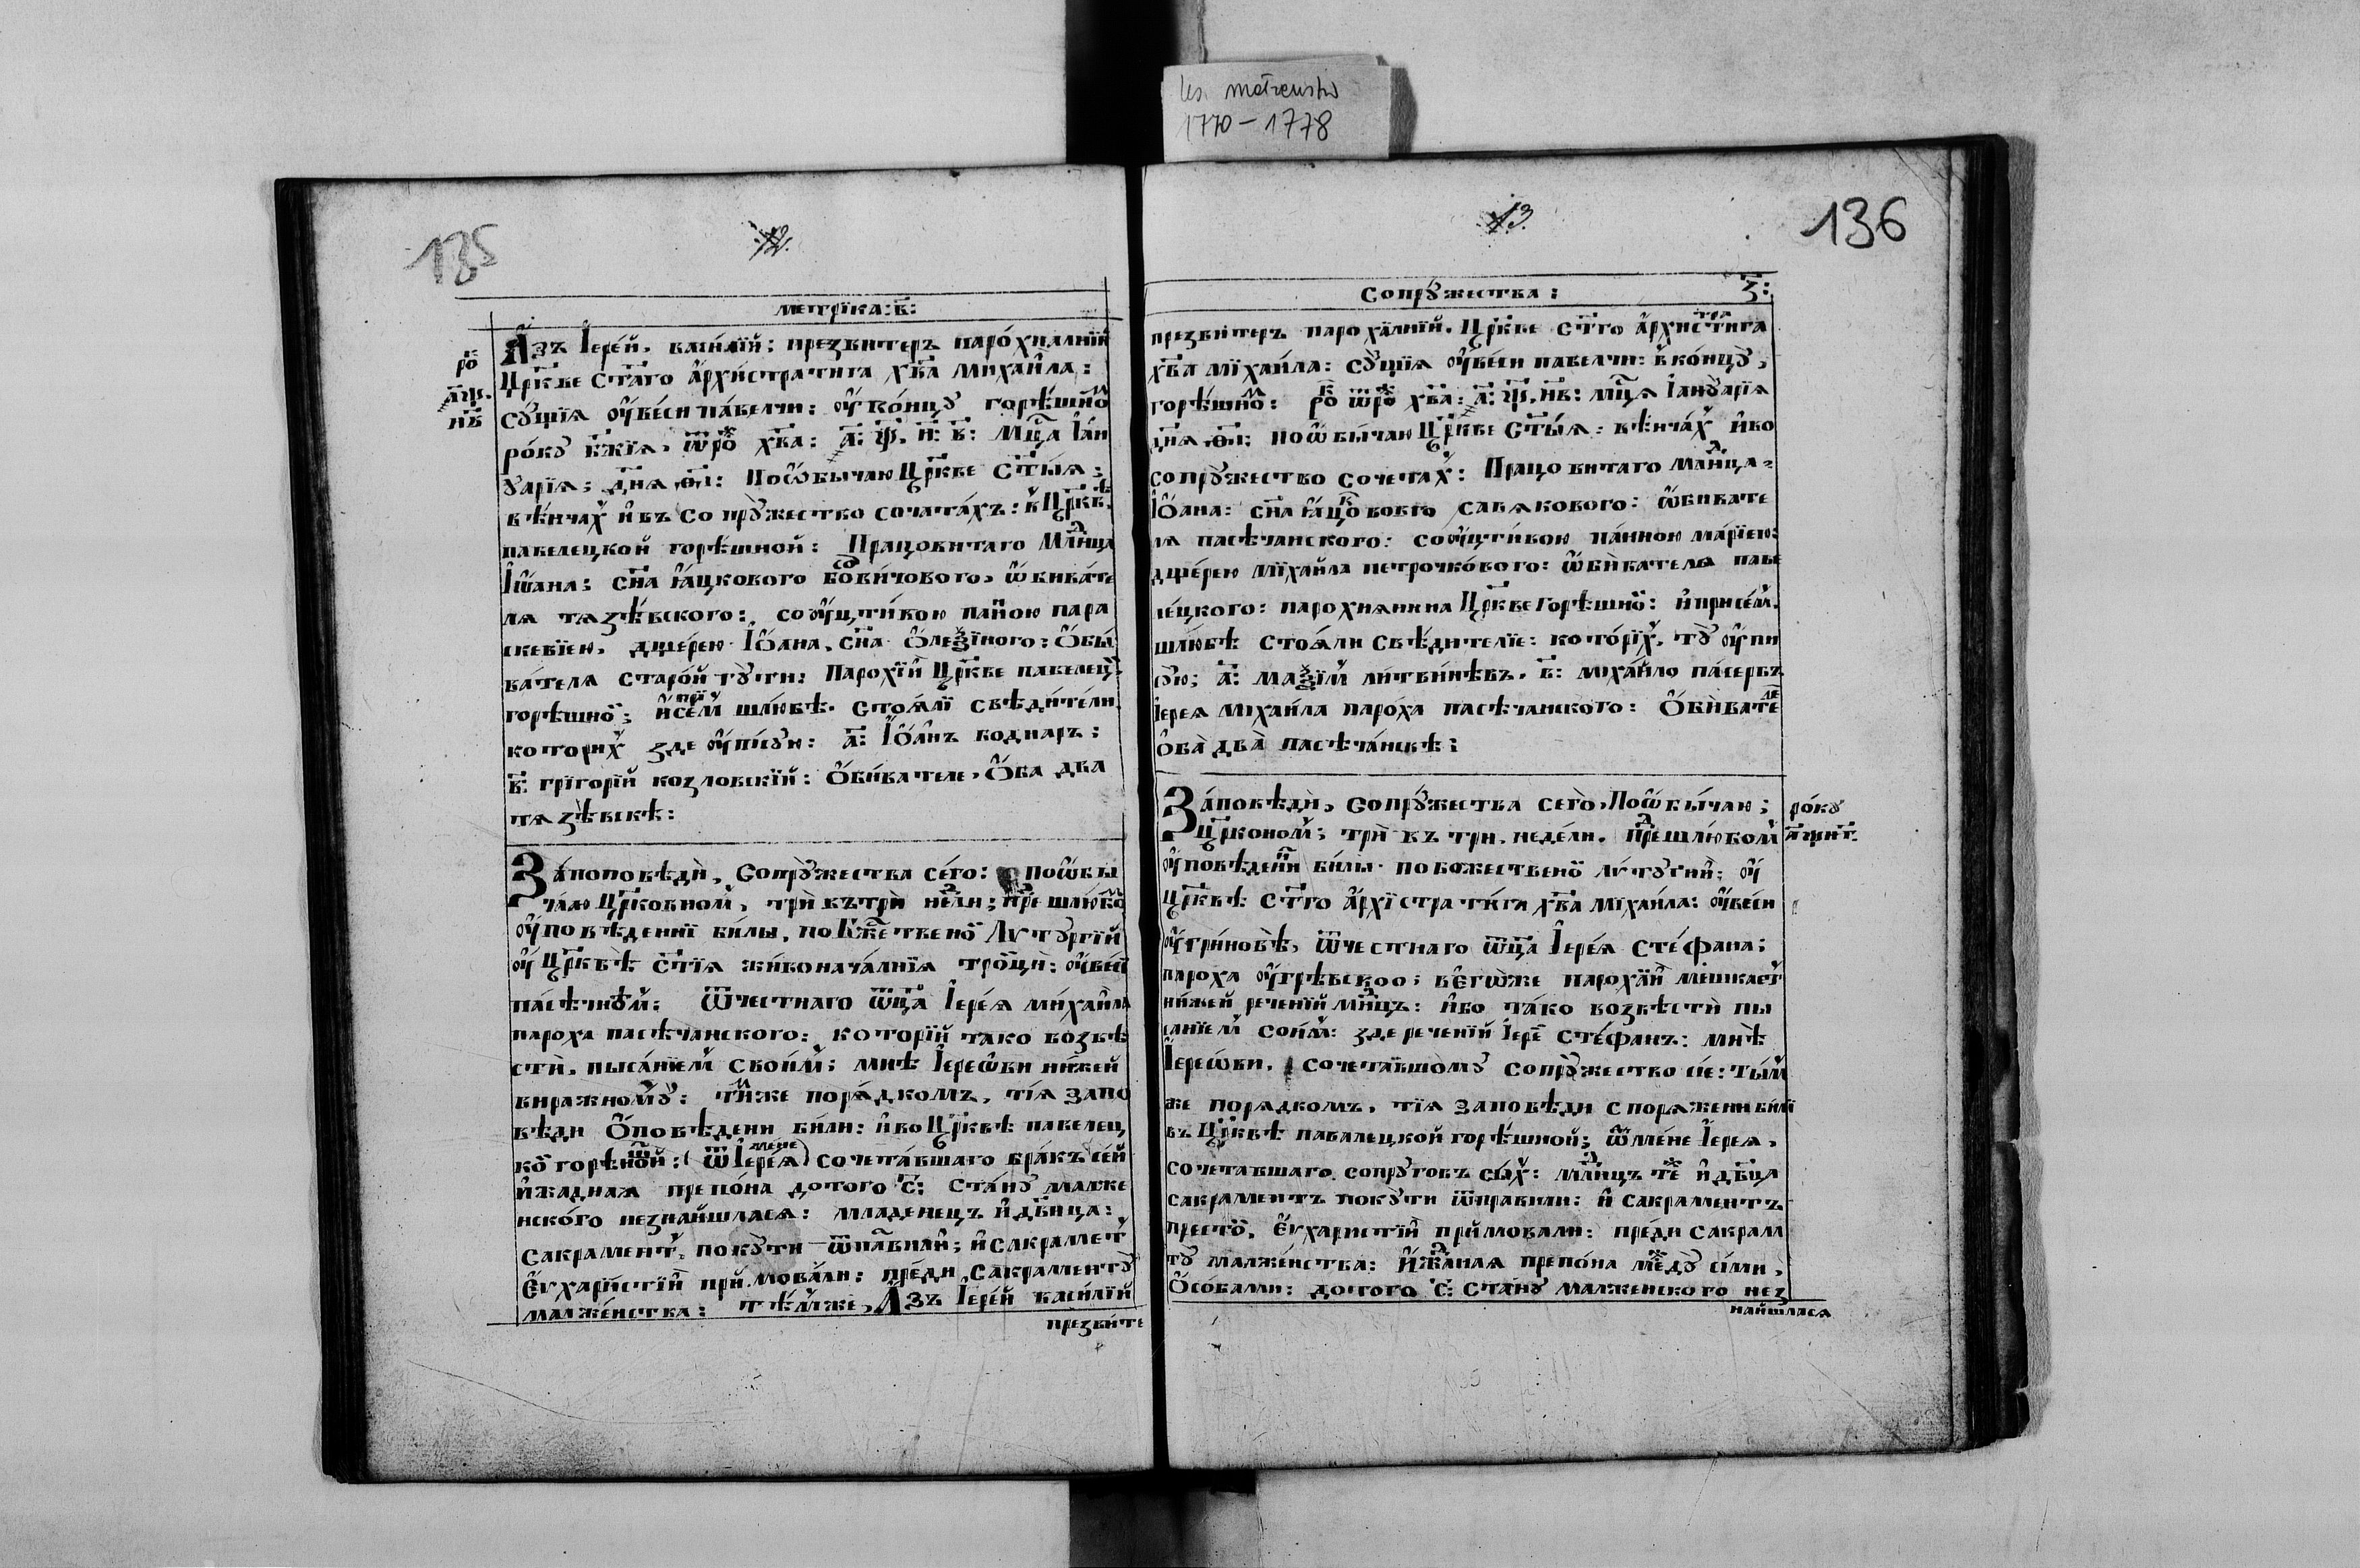 les. matrenstw
1770-1778
135
12.
метрїка: в҃:
ро҃
҂а҃ѱ.
н҃в
Азъ Іерей, василїй; презвитеръ парохиалнїй
Црк҃ве Ст҃аго архистратига хв҃а михаила:
сꙋщїя оу҆веси павелчи: оу҆ концꙋ горѣшно҆м
рокꙋ бж҃ія, ѿ рож хв҃а: ҂а҃: ѱ҃. н҃: в҃: Мц҃а Іан
ꙋарїа; дн҃я ѳ҃і: Поѡбычаю Црк҃ве Ст҃ыя;
вѣнчах и҆въ сопрꙋжество сочатахъ: в Црк҃вѣ
павелецкой горѣшной: Працовитаго Млд҃нца
Іѡана; сн҃а Яцкового вовичового, ѡбивате
ля тязѣвского: со оучтивою панною пара
скевїею, дщерею Іоана, сн҃а Олеѯїного: Обы
вателя старой гꙋти: Парохїй Црк҃ве павелец
горѣшной; и при сем шлюбѣ. Стоялї свѣдители
которих зде оу҆писꙋю: а҃: Іоанъ боднаръ;
в҃: григорїй козловскїй: Обивателе, Оба два
тязѣвскѣ:
Запоповѣди, Сопрꙋжества сего: поѡбы
чаю Црк҃овном, три въ три недли; пред шлюбом
оу҆повѣденнї били, по Бж҃ственой Лѵтꙋргїй
оу҆ Црк҃вѣ Ст҃ія живоначалнїя тро҃ци: оу҆веси
пасѣчном: Ѿ честнаго ѿц҃а Іерея михаила
пароха пасѣчанского: которїй тако возвѣ
сти, пысанїем своим; мнѣ Іереѡви нижей
виражномꙋ: тимже порядкомъ, тїя запо
вѣди Оповѣдени били: иво Црк҃вѣ павелец
кой горѣшной: (ѿ мене Іерея) сочетавшаго бракъ сей
и жадная препона дотого С҃: Станꙋ малже
нского незнайшлася: младенецъ и дв҃ица:
сакрамент покꙋти ѿправили; и сакрамет
Еѵхаристїи приймовали: преди Сакраментꙋ
малженства: тѣмже, Азъ Іерей василїй
презвите
136
13.
Сопрꙋжества: з҃:
презвитеръ парохїалнїй. Црк҃ве Ст҃го архистратига
хв҃а мїхаила: сꙋщїя оу҆веси павелчи: в концꙋ,
горѣшном: рокꙋ ѿ рож хв҃а: ҂а҃: ѱ҃. н҃в: мц҃я Іанꙋарїя
дн҃я ѳ҃і: поѡбычаю Црк҃ве Ст҃ыя: вѣнчах иво
сопрꙋжество сочетах: Працовитаго млд҃нца
Іѡана: сн҃а яцковово савякового: ѡбивате
ля пасѣчанского: со оучтивою панною марїею:
дщерею мїхаила петрочкового: ѡбивателя паве
лецкого: парохиянина Црк҃ве горѣшной: и при сем
шлюбѣ стояли свѣдителїе: которїх тꙋ оу҆пи
сꙋю; а҃: маѯїм литвинѣвъ. в҃: міхайло пасербъ
Іерея мїхаила пароха пасѣчанского: Обивателе
Оба два пасѣчанскѣ:
Заповѣди, Сопрꙋжества сего, Поѡбычаю;
Црк҃оном; три въ три недели. Пред шлюбом
оу҆повѣденни били по божественой лѵтꙋгии; оу҆
Црк҃вѣ Ст҃го архїстратига хв҃а мїхаила: оу҆веси
оу҆гриновѣ, ѿ честнаго ѿц҃а Іерея Стефана;
пароха оу҆грѣвскоо; в егѡже парохїи мешкает
нижей реченїй млнцъ: иво тако возвѣсти пы
санїем Соим: зде реченїй Іере Стефанъ: мнѣ
Іереѡви. сочетавшомꙋ сопрꙋжество сїе: тым
же порядкомъ, тїя заповѣди споряжени били
въ Црк҃вѣ павалецкой горѣшной; ѿ мене Іерея,
сочетавшаго сопрꙋговъ сых: млд҃нцъ теж и дв҃ца
сакраментъ покꙋти ѿправили: и сакраментъ
престой. Еѵхаристїи приймовали: преди сакрам
тꙋ малженства: и жадная препона междꙋ сими,
Особами: дотого С҃: станꙋ малженского нез
найшлася
рокꙋ
҂аѱнг.